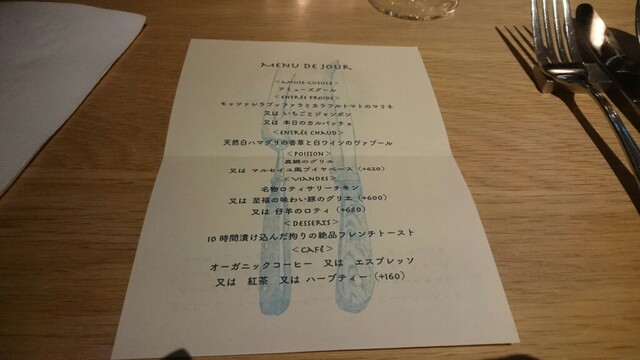 MENU DE JOUR
<AMUSE-GUEULE>
アミューズグール
<ENTRÉE FROIDE>
モッツァレラブッファラとカラフルトマトのマリネ
又は いちごとジャンボン
又は 本日のカルパッチョ
<ENTRÉE CHAUD>
天然白ハマグリの香草と白ワインのヴァプール
<POISSON>
真鯛のグリエ
又は マルセイユ風ブイヤベース (+620)
<VIANDES>
名物ロティサリーチキン
又は 至福の味わい豚のグリエ (+600)
又は 仔羊のロティ (+680)
<DESSERTS>
10時間漬け込んだ拘りの絶品フレンチトースト
<CAFÉ>
オーガニックコーヒー 又は エスプレッソ
又は 紅茶 又は ハーブティー (+160)